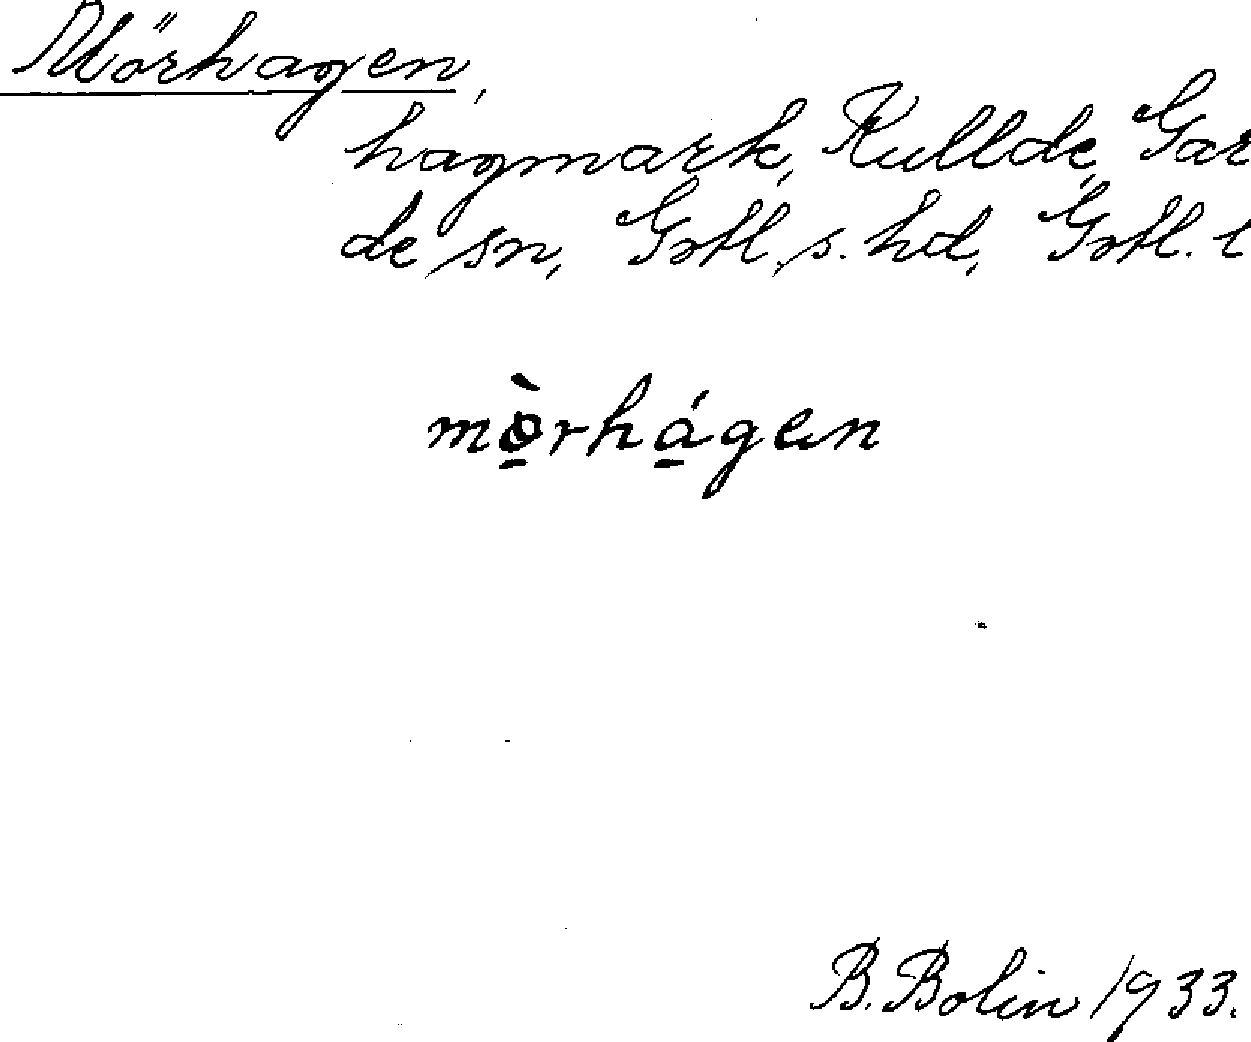 Mörhagen,
hagmark, Kullde, Gar
de sn, Gotl. s. hd, Gotl. l
mòrhágen
B. Bolin 1933.